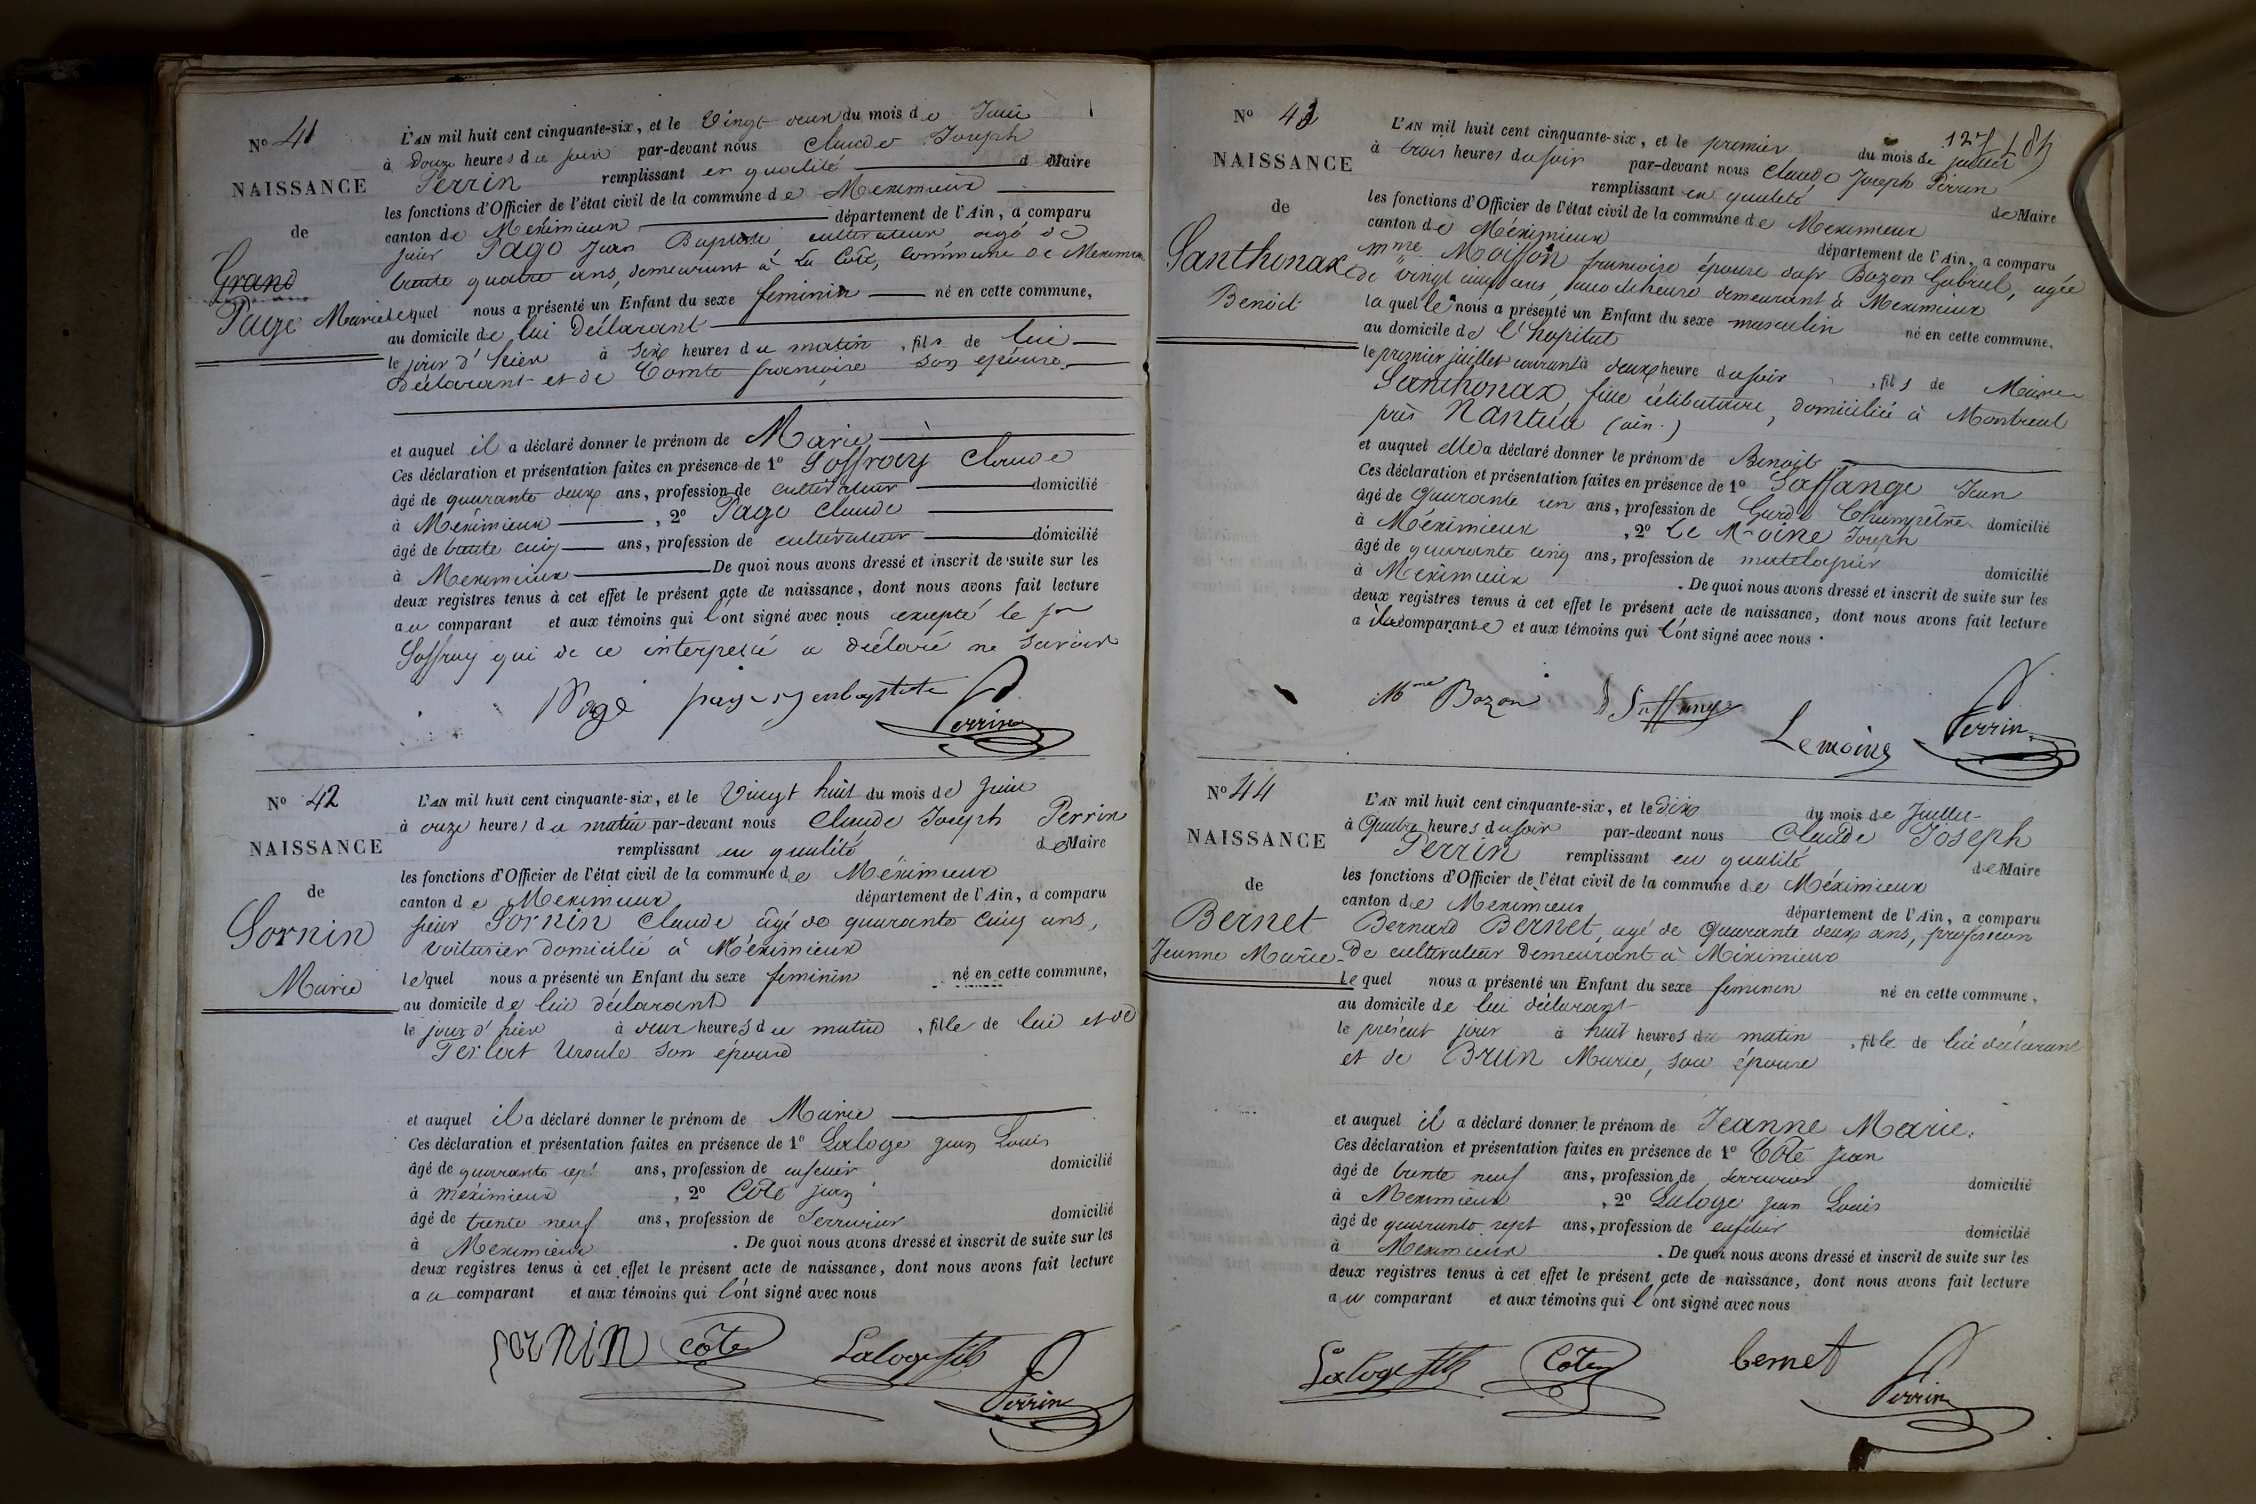 N° 41
NAISSANCE
de
Grand
Page Marie
L'AN mil huit cent cinquante-six, et le Vingt deux du mois de Juin
à Douze heures du soir par-devant nous Claude Joseph
Perrin remplissant en qualité de Maire
les fonctions d'Officier de l'état civil de la commune de Meximieux
canton de Meximieux département de l'Ain, a comparu
sieur Page Jean Baptiste cultivateur agé de
trente quatre ans, demeurant à La Côte, commune de Meximieux
lequel nous a présenté un Enfant du sexe feminin né en cette commune,
au domicile de lui Déclarant
le jour d'hier à six heures du matin, fils de lui
Déclarant et de Comte françoise son épouse.
et auquel il a déclaré donner le prénom de Marie
Ces déclaration et présentation faites en présence de 1° Soffray Claude
âgé de quarante deux ans, profession de cultivateur domicilié
à Méximieux, 2° Page Claude
âgé de trente cinq ans, profession de cultivateur domicilié
à Meximieux De quoi nous avons dressé et inscrit de suite sur les
deux registres tenus à cet effet le présent acte de naissance, dont nous avons fait lecture
au comparant et aux témoins qui l'ont signé avec nous excepté le sr
Soffray qui de ce interpelé a déclaré ne savoir
Pagé page jenbaptiste
Perrin
N° 42
NAISSANCE
de
Sornin
Marie
L'AN mil huit cent cinquante-six, et le Vingt huit du mois de Juin
à onze heures du matin par-devant nous Claude Joseph Perrin
remplissant en qualité de Maire
les fonctions d'Officier de l'état civil de la commune de Méximieux
canton de Meximieux département de l'Ain, a comparu
sieur Sornin Claude âgé de quarante cinq ans,
voiturier domicilié à Méximieux
lequel nous a présenté un Enfant du sexe feminin né en cette commune,
au domicile de lui déclarant
le jour d'hier à deux heures du matin, fille de lui et de
Ursule son épouse
et auquel il a déclaré donner le prénom de Marie
Ces déclaration et présentation faites en présence de 1° Laloge Jean Louis
âgé de quarante sept ans, profession de domicilié
à meximieux, 2° Côte Jean
âgé de trente neuf ans, profession de Serrurier domicilié
à Meximieux. De quoi nous avons dressé et inscrit de suite sur les
deux registres tenus à cet effet le présent acte de naissance, dont nous avons fait lecture
au comparant et aux témoins qui l'ont signé avec nous
sornin côte Laloge fils
Perrin
127
N° 43
NAISSANCE
de
Santhonax
Benoit
L'AN mil huit cent cinquante-six, et le premier du mois de juillet
à trois heures du soir par-devant nous Claude Joseph Perrin
remplissant en qualité de Maire
les fonctions d'Officier de l'état civil de la commune de Meximieux
canton de Méximieux département de l'Ain, a comparu
Mme Moisson francoise épouse du sr Bozon Gabriel, agée
de vingt cinq ans, demeurant à Meximieux
laquelle nous a présenté un Enfant du sexe masculin né en cette commune,
au domicile de l'hopital
le premier juillet courant à deux heure du soir, fils de Marie
Santhonax, fille célibataire, domiciliée à Montreal
près Nantua (ain.)
et auquel elle a déclaré donner le prénom de Benoit
Ces déclaration et présentation faites en présence de 1° Saffange Jean
âgé de quarante un ans, profession de Garde Champêtre domicilié
à Méximieux, 2° Le Moine Joseph
âgé de quarante cinq ans, profession de matelassier domicilié
à Meximieux. De quoi nous avons dressé et inscrit de suite sur les
deux registres tenus à cet effet le présent acte de naissance, dont nous avons fait lecture
à la comparante et aux témoins qui l'ont signé avec nous.
Mme Bozon Saffange
Lemoine Perrin
N° 44
NAISSANCE
de
Bernet
Jeanne Marie
L'AN mil huit cent cinquante-six, et le dix du mois de Juillet
à Quatre heures du soir par-devant nous Claude Joseph
Perrin remplissant en qualité de Maire
les fonctions d'Officier de l'état civil de la commune de Méximieux
canton de Meximieux département de l'Ain, a comparu
Bernard Bernet, agé de Quarante deux ans, profession
De cultivateur Demeurant à Méximieux
lequel nous a présenté un Enfant du sexe feminin né en cette commune,
au domicile de lui déclarant
le présent jour à huit heures du matin, fille de lui déclarant
et de Brun Marie, son épouse
et auquel il a déclaré donner le prénom de Jeanne Marie.
Ces déclaration et présentation faites en présence de 1° Côte Jean
âgé de trente neuf ans, profession de serrurier domicilié
à Meximieux, 2° Laloge Jean Louis
âgé de quarante sept ans, profession de domicilié
à Meximieux. De quoi nous avons dressé et inscrit de suite sur les
deux registres tenus à cet effet le présent acte de naissance, dont nous avons fait lecture
au comparant et aux témoins qui l'ont signé avec nous
Laloge fils Côte bernet
Perrin